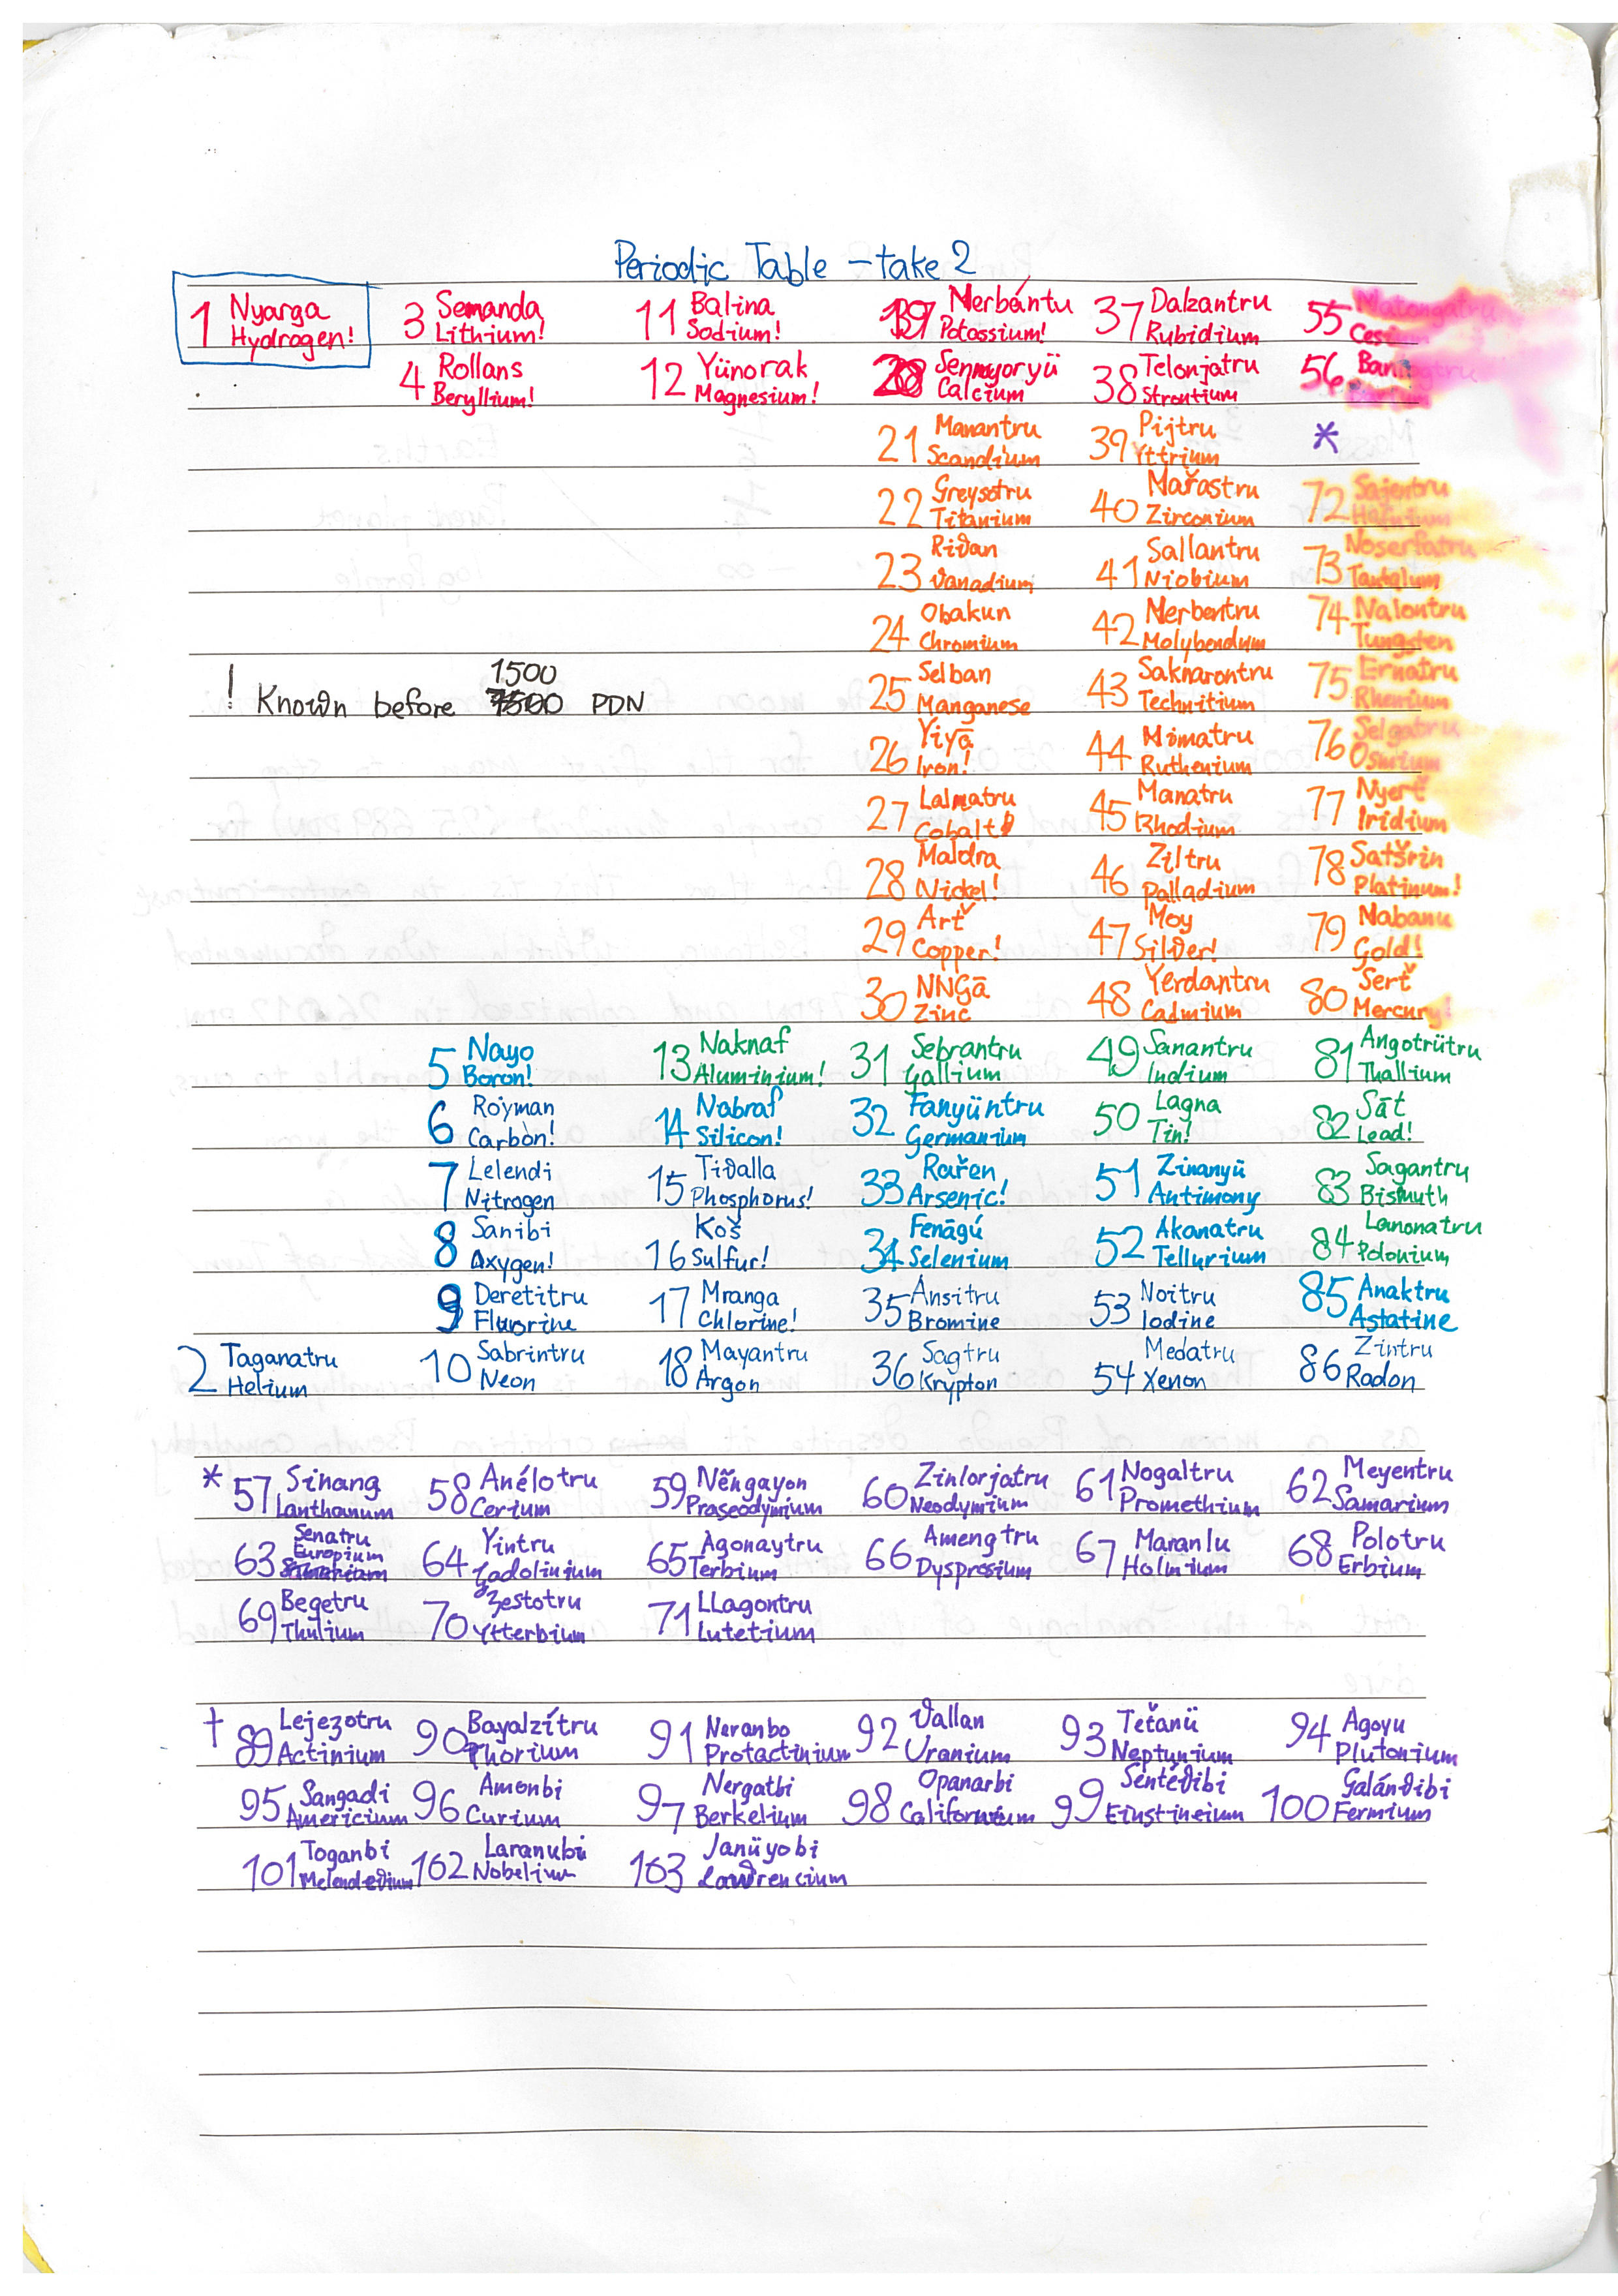 Periodic Table – take 2
1 Nyarga 3 Semanda 11 Balina 19 Merbántu 37 Dalzantru 55 Matongatru
Hydrogen! Lithium! Sodium! Potossium! Rubidium
4 Rollans 12 Yünorak 20 Sennyoryü 38 Telonjatru 56
Beryllium! Magnesium! Calcium Strontium
21 Manantru 39 Pijtru *
Scandium Yttrium
22 Greysotru 40 Mařastru 72 Sajentru
Titanium Zirconium Hafnium
23 Riϑan 41 Sallantru 73 Noserfatru
ϑanadium Niobium Tantalum
24 Obakun 42 Merbentru 74 Nalontru
Chromium Molybendum Tungsten
! Known before 1500 PDN
25 Selban 43 Saknarontru 75 Ernatru
Manganese Technitium Rhenium
26 Yiyā 44 Mimatru 76 Selgatru
Iron! Ruthenium Osmium
27 Lalmatru 45 Manatru 77 Nyerť
Cobalt Rhodium Iridium
28 Maldra 46 Ziltru 78 Satšrin
Nickel! Palladium Platinum!
29 Arť 47 Moy 79 Nabanu
Copper! Silϑer! Gold!
30 NNGā 48 Yerdantru 80 Serť
Zinc Cadmium Mercury!
5 Nayo 13 Naknaf 31 Sebrantru 49 Sanantru 81 Angotrütru
Boron! Aluminium! Gallium Indium Thallium
6 Royman 14 Nabraf 32 Fanyüntru 50 Lagna 82 Sāt
Carbon! Silicon! Germanium Tin! Lead!
7 Lelendi 15 Tiϑalla 33 Rařen 51 Zinanyü 83 Sagantru
Nitrogen Phosphorus! Arsenic! Antimony Bismuth
8 Sanibi 16 Koš 34 Fenāgú 52 Akanatru 84 Lamonatru
Oxygen! Sulfur! Selenium Tellurium Polonium
9 Deretitru 17 Mranga 35 Ansitru 53 Noitru 85 Anaktru
Fluorine Chlorine! Bromine Iodine Astatine
2 Taganatru 10 Sabrintru 18 Mayantru 36 Sagtru 54 Medatru 86 Zintru
Helium Neon Argon Krypton Xenon Radon
* 57 Sinang 58 Anélotru 59 Něngayon 60 Zinlorjatru 61 Nogaltru 62 Meyentru
Lanthanum Cerium Praseodymium Neodymium Promethium Samarium
63 Senatru 64 Yintru 65 Agonaytru 66 Amengtru 67 Maranlu 68 Polotru
Europium Gadolinium Terbium Dyspresium Holmium Erbium
69 Begetru 70 Zestotru 71 LLagontru
Thulium Ytterbium Lutetium
† 89 Lejezotru 90 Bayalzítru 91 Neranbo 92 ϑallan 93 Teťanü 94 Agoyu
Actinium Thorium Protactinium Uranium Neptunium Plutonium
95 Sangadi 96 Amonbi 97 Nergatbi 98 Opanarbi 99 Sentéϑibi 100 Galánϑibi
Americium Curium Berkelium Californium Einstineium Fermium
101 Toganbi 102 Laranubi 103 Janüyobi
Melendeϑium Nobelium Laϑrencium